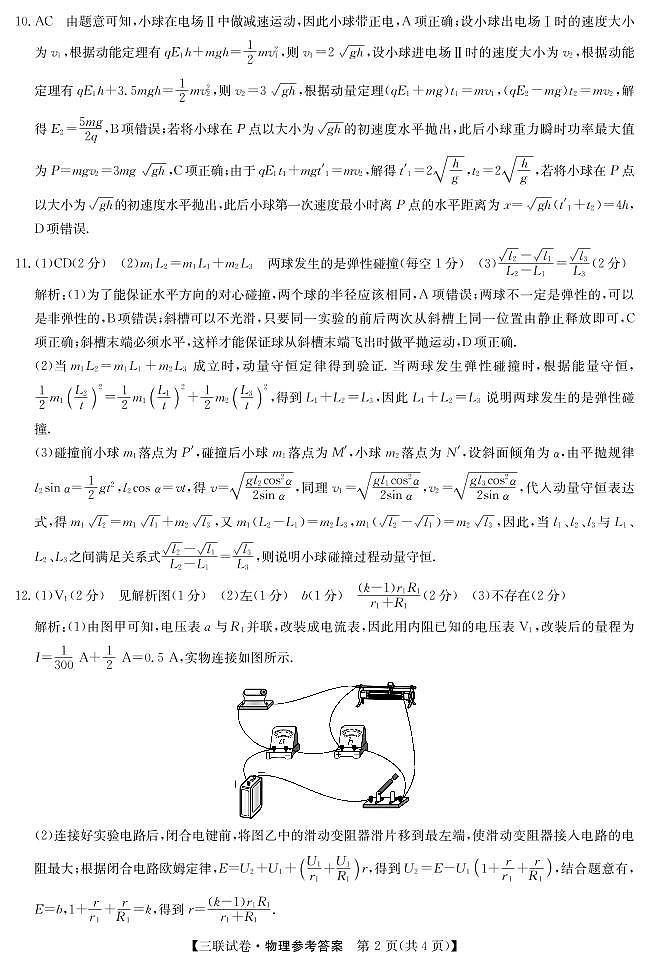 10. AC　由题意可知,小球在电场Ⅱ中做减速运动,因此小球带正电,A项正确;设小球出电场Ⅰ时的速度大小
为 v₁,根据动能定理有 qE₁h+mgh=1/2 mv₁²,则 v₁=2√(gh),设小球进电场Ⅱ时的速度大小为 v₂,根据动能
定理有 qE₁h+3.5mgh=1/2 mv₂²,则 v₂=3√(gh),根据动量定理(qE₁+mg)t₁=mv₁,(qE₂-mg)t₂=mv₂,解
得 E₂=5mg/2q,B项错误;若将小球在 P 点以大小为√(gh)的初速度水平抛出,此后小球重力瞬时功率最大值
为 P=mgv₂=3mg√(gh),C项正确;由于 qE₁t₁+mgt′₁=mv₂,解得 t′₁=2√(h/g),t₂=2√(h/g),若将小球在 P 点
以大小为√(gh)的初速度水平抛出,此后小球第一次速度最小时离 P 点的水平距离为 x=√(gh)(t′₁+t₂)=4h,
D项错误.
11. (1)CD(2分)　(2)m₁L₂=m₁L₁+m₂L₃　两球发生的是弹性碰撞(每空1分)　(3)(√l₂-√l₁)/(L₂-L₁)=√l₃/L₃(2分)
解析:(1)为了能保证水平方向的对心碰撞,两个球的半径应该相同,A项错误;两球不一定是弹性的,可以
是非弹性的,B项错误;斜槽可以不光滑,只要同一实验的前后两次从斜槽上同一位置由静止释放即可,C
项正确;斜槽末端必须水平,这样才能保证球从斜槽末端飞出时做平抛运动,D项正确.
(2)当 m₁L₂=m₁L₁+m₂L₃ 成立时,动量守恒定律得到验证.当两球发生弹性碰撞时,根据能量守恒,
1/2 m₁(L₂/t)²=1/2 m₁(L₁/t)²+1/2 m₂(L₃/t)²,得到 L₁+L₂=L₃,因此 L₁+L₂=L₃ 说明两球发生的是弹性碰
撞.
(3)碰撞前小球 m₁落点为 P′,碰撞后小球 m₁落点为 M′,小球 m₂落点为 N′,设斜面倾角为 α,由平抛规律
l₂sin α=1/2 gt²,l₂cos α=vt,得 v=√(gl₂cos²α/2sin α),同理 v₁=√(gl₁cos²α/2sin α),v₂=√(gl₃cos²α/2sin α),代入动量守恒表达
式,得 m₁√l₂=m₁√l₁+m₂√l₃,又 m₁(L₂-L₁)=m₂L₃,m₁(√l₂-√l₁)=m₂√l₃,因此,当 l₁、l₂、l₃与 L₁、
L₂、L₃之间满足关系式(√l₂-√l₁)/(L₂-L₁)=√l₃/L₃,则说明小球碰撞过程动量守恒.
12. (1)V₁(2分)　见解析图(1分)　(2)左(1分)　b(1分)　(k-1)r₁R₁/(r₁+R₁)(2分)　(3)不存在(2分)
解析:(1)由图甲可知,电压表 a 与 R₁并联,改装成电流表,因此用内阻已知的电压表 V₁,改装后的量程为
I=1/300 A+1/2 A=0.5 A,实物连接如图所示.
(2)连接好实验电路后,闭合电键前,将图乙中的滑动变阻器滑片移到最左端,使滑动变阻器接入电路的电
阻最大;根据闭合电路欧姆定律,E=U₂+U₁+(U₁/r₁+U₁/R₁)r,得到 U₂=E-U₁(1+r/r₁+r/R₁),结合题意有,
E=b,1+r/r₁+r/R₁=k,得到 r=(k-1)r₁R₁/(r₁+R₁).
【三联试卷·物理参考答案　第2页(共4页)】